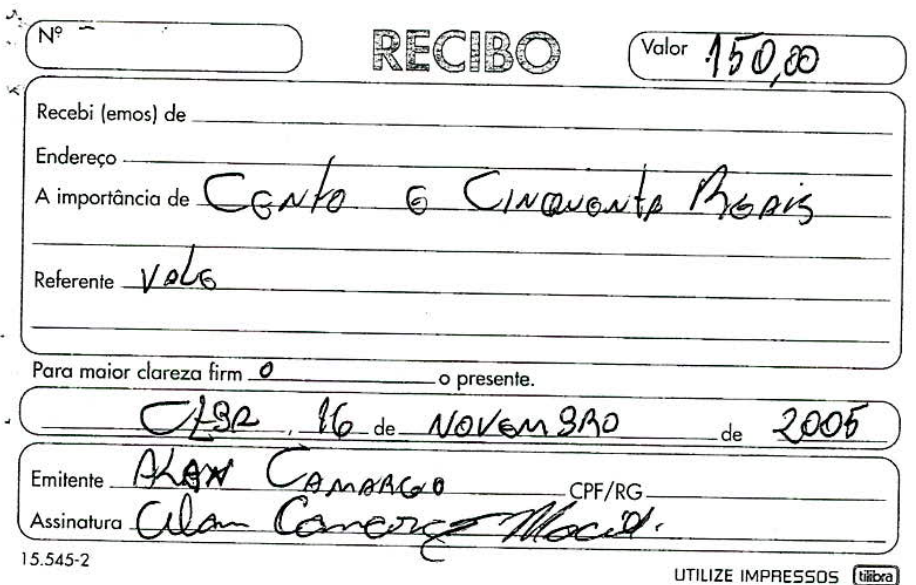 Nº RECIBO Valor 150,00
Recebi (emos) de
Endereço
A importância de Cento e Cinquenta Reais
Referente Vale
Para maior clareza firm o o presente.
16 de NOVEMBRO de 2005
Emitente ALAN CAMARGO CPF/RG
Assinatura Alan Camargo Maciel.
15.545-2
UTILIZE IMPRESSOS tilibra